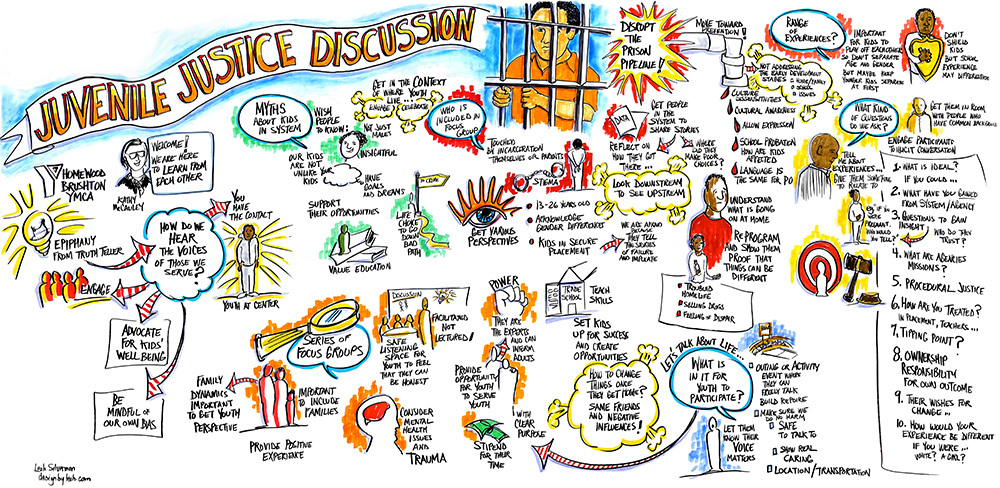 JUVENILE JUSTICE DISCUSSION
WELCOME!
WE ARE HERE
TO LEARN FROM
EACH OTHER
KATHY
McCAULEY
HOMEWOOD
BRUSHTON
YMCA
EPIPHANY
FROM TRUTH TELLER
ENGAGE
HOW DO WE
HEAR
THE VOICES
OF THOSE WE
SERVE?
YOU
MAKE
THE CONTACT
YOUTH AT CENTER
ADVOCATE
FOR KIDS'
WELL BEING
BE
MINDFUL OF
OUR OWN BIAS
MYTHS
ABOUT KIDS
IN SYSTEM
WISH
PEOPLE
TO KNOW:
OUR KIDS
ARE NOT
UNLIKE
YOUR
KIDS
NOT JUST
MALES
INSIGHTFUL
HAVE
GOALS
AND DREAMS
GET IN THE CONTEXT
OF WHERE YOUTH
LIVE...
ENGAGE & CELEBRATE
WHO IS
INCLUDED IN
FOCUS
GROUP?
SUPPORT
THEIR OPPORTUNITIES
VALUE EDUCATION
TO CRIME
LIFE
CHOICE
TO GO
DOWN
BAD
PATH
TOUCHED
BY INCARCERATION
THEMSELVES OR PARENTS
STIGMA
GET VARIOUS
PERSPECTIVES
13-26 YEARS OLD
ACKNOWLEDGE
GENDER DIFFERENCE
KIDS IN SECURE
PLACEMENT
DISRUPT
THE
PRISON
PIPELINE!
MOVE TOWARD
PREVENTION!
NOT ADDRESSING
THE EARLY DEVELOPMENT
STAGES
ISSUES
DATA
GET PEOPLE
IN THE
SYSTEM
TO SHARE
STORIES
REFLECT ON
HOW THEY GOT
THERE...
WHERE
DID THEY
MAKE POOR
CHOICES?
LOOK DOWNSTREAM
TO SEE UPSTREAM
WE ARE AFRAID
BECAUSE
THEY TELL
THE STORIES
OF FAILURE
AND IMPLICATE
CULTURE
CULTURAL AWARENESS
ALLOW EXPRESSION
SCHOOL PROBATION
HOW ARE KIDS
AFFECTED
LANGUAGE IS
THE SAME FOR PO
UNDERSTAND
WHAT IS
GOING ON
AT HOME
REPROGRAM
AND SHOW THEM
PROOF THAT
THINGS CAN BE
DIFFERENT
TROUBLED
HOMELIFE
SELLING DRUGS
FEELING OF DESPAIR
RANGE
OF
EXPERIENCES?
IMPORTANT
FOR KIDS TO
PLAY OFF EACHOTHER
SO DON'T SEPARATE
AGE AND GENDER
BUT MAYBE KEEP
YOUNGER KIDS SEPARATE
AT FIRST
DON'T
SHIELD
KIDS
BUT SCHOOL
EXPERIENCE
MAY DIFFERENTIATE
WHAT KIND
OF QUESTIONS
DO WE ASK?
GET THEM IN ROOM
WITH PEOPLE WHO
HAVE COMMON BACKGROUND
TELL ME
ABOUT YOUR
EXPERIENCES...
GIVE THEM SOMETHING
TO RELATE TO
IF YOU
WERE
PREGNANT
WHO WOULD
YOU TELL?
WHO DO THEY
TRUST?
ENGAGE PARTICIPANTS
TO ILLICIT CONVERSATION
1. WHAT IS IDEAL?
IF YOU COULD...
2. WHAT HAVE YOU GAINED
FROM SYSTEM/AGENCY
3. QUESTIONS TO GAIN
INSIGHT
4. WHAT ARE AGENCIES
MISSIONS?
5. PROCEDURAL JUSTICE
6. HOW ARE YOU TREATED?
IN PLACEMENT, TEACHERS...
7. TIPPING POINT?
8. OWNERSHIP
RESPONSIBILITY
FOR OWN OUTCOME
9. THEIR WISHES FOR
CHANGE...
10. HOW WOULD YOUR
EXPERIENCE BE DIFFERENT
IF YOU WERE...
WHITE? A GIRL?
SERIES OF
FOCUS GROUPS
FAMILY
DYNAMICS
IMPORTANT
TO GET YOUTH
PERSPECTIVE
IMPORTANT
TO INCLUDE
FAMILIES
PROVIDE POSITIVE
EXPERIENCE
DISCUSSION
SAFE
LISTENING
SPACE FOR
YOUTH TO FEEL
THAT THEY
CAN BE
HONEST
FACILITATED
NOT
LECTURED!
CONSIDER
MENTAL
HEALTH
ISSUES AND
TRAUMA
POWER
THEY ARE
THE EXPERTS
AND CAN
INFORM
ADULTS
PROVIDE
OPPORTUNITY
FOR YOUTH
TO SERVE
YOUTH
WITH
CLEAR
PURPOSE
STIPEND
FOR THEIR
TIME
TRADE
SCHOOL
TEACH
SKILLS
SET KIDS
UP FOR SUCCESS
AND CREATE
OPPORTUNITIES
HOW TO CHANGE
THINGS ONCE
THEY GET HOME?
SAME FRIENDS
AND NEGATIVE
INFLUENCES!
LET'S TALK ABOUT LIFE...
WHAT IS
IN IT FOR
YOUTH TO
PARTICIPATE?
LET THEM
KNOW THEIR
VOICE
MATTERS
OUTING OR ACTIVITY
EVENT WHERE
THEY CAN
FREELY TALK
BUILD RAPPORE
MAKE SURE WE
DO NO HARM
SAFE
TO TALK TO
SHOW REAL
CARING
LOCATION/TRANSPORTATION
Leah Silverman
designbyleah.com